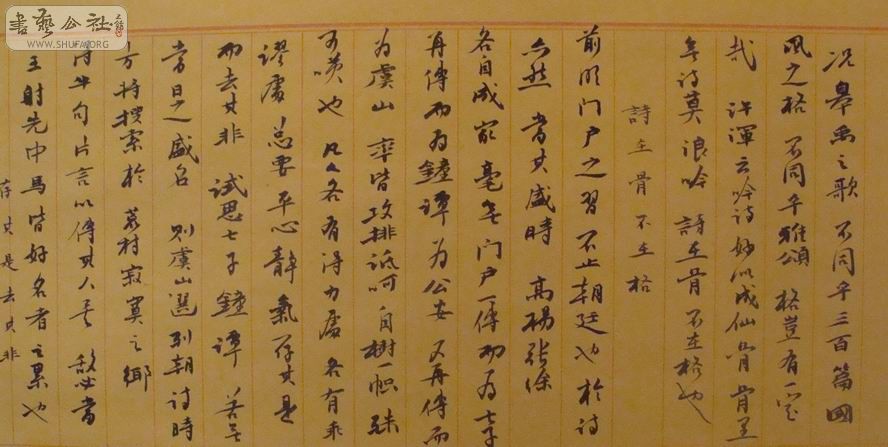 书艺公社
WWW.SHUFA.ORG
况皋禹之歌 不同乎三百篇 國
風之格 不同乎雅頌 格豈有一定
哉 許渾云吟詩好似成仙骨 骨里
無詩莫浪吟 詩在骨 不在格也
詩在骨不在格
前明門户之習 不止朝廷也 於詩
亦然 當其盛時 高楊張徐
各自成家 毫無門户 一傳而為七子
再傳而為鐘譚 為公安 又再傳而
為虞山 率皆攻排詆呵 自樹一幟 殊
可咲也 凡人各有得力處 各有乖
謬處 总要平心靜氣 存其是
而去其非 試思七子 鐘譚 若無
當日之盛名 則虞山選列朝詩時
方將搜索於荒村寂寞之鄉
得半句片言以傳其人矣 敵必當
王射先中馬 皆好名者之累也
存其是去其非